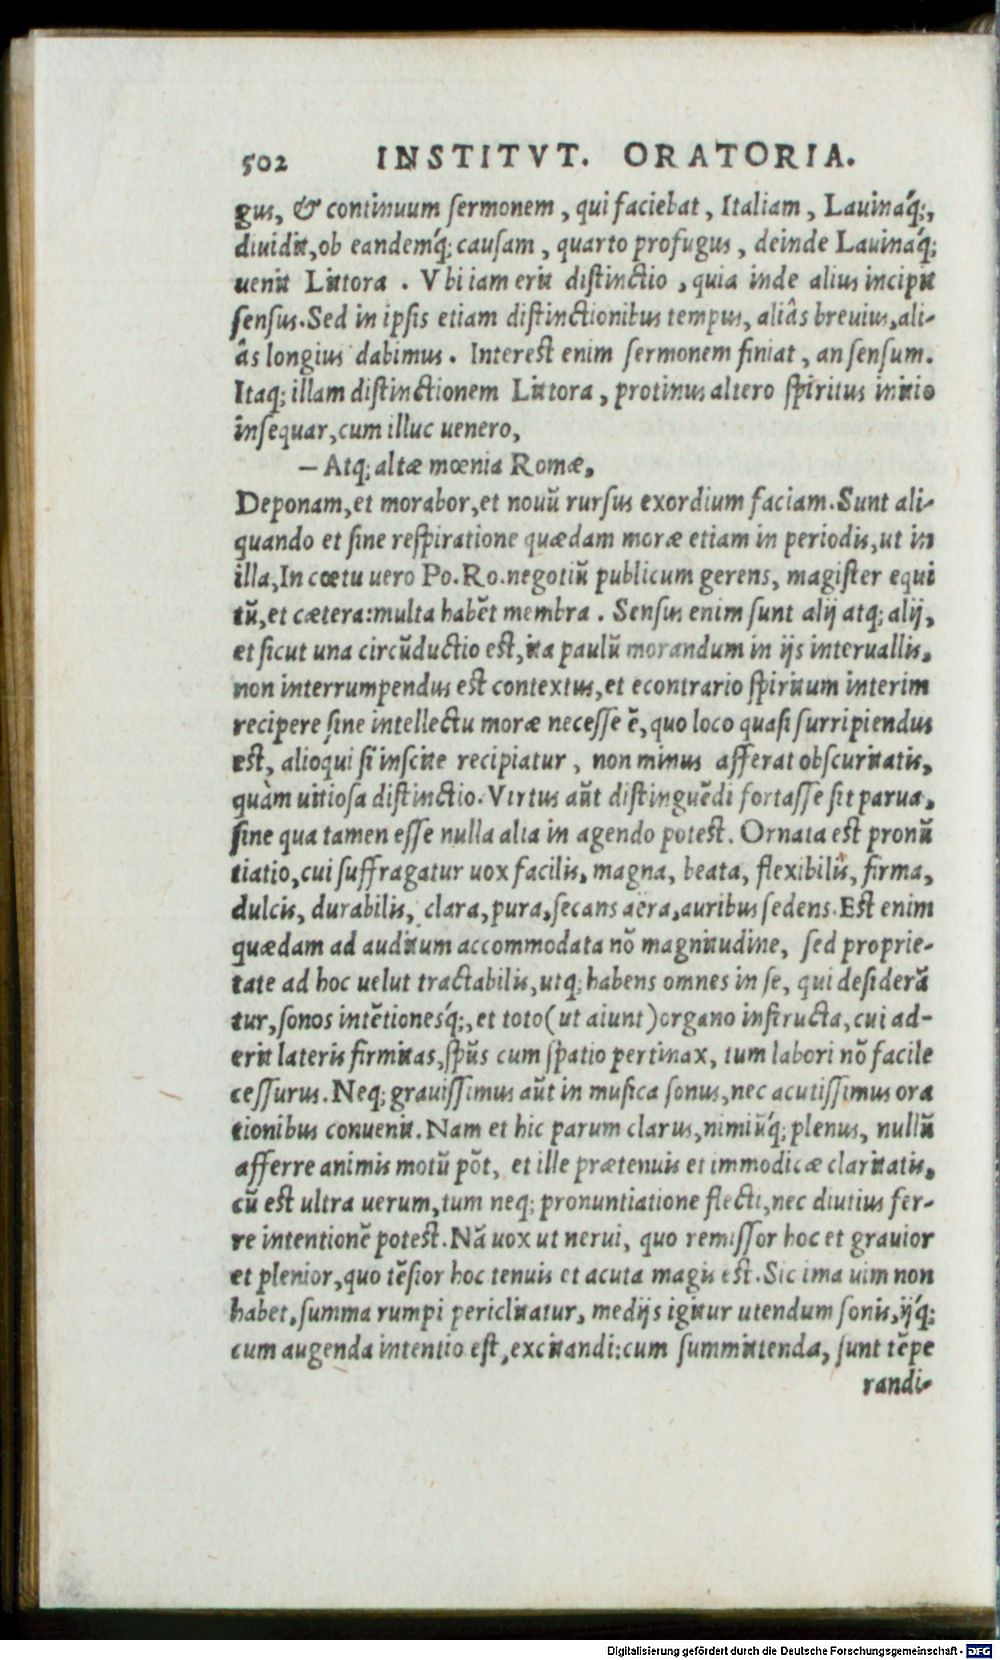 502 INSTITVT. ORATORIA.
gus, & continuum sermonem, qui faciebat, Italiam, Lauináq;,
diuidit, ob eandemq́; causam, quarto profugus, deinde Lauináq;
uenit Littora. Vbi iam erit distinctio, quia inde alius incipit
sensus. Sed in ipsis etiam distinctionibus tempus, aliâs breuius, ali-
âs longius dabimus. Interest enim sermonem finiat, an sensum.
Itaq; illam distinctionem Littora, protinus altero spiritus initio
insequar, cum illuc uenero,
— Atq; altæ mœnia Romæ,
Deponam, et morabor, et nouũ rursus exordium faciam. Sunt ali-
quando et sine respiratione quædam moræ etiam in periodis, ut in
illa, In cœtu uero Po. Ro. negotiũ publicum gerens, magister equi
tũ, et cætera: multa habẽt membra. Sensus enim sunt alij atq; alij,
et sicut una circũductio est, ita paulũ morandum in ijs interuallis,
non interrumpendus est contextus, et econtrario spiritum interim
recipere sine intellectu moræ necesse ẽ, quo loco quasi surripiendus
est, alioqui si inscite recipiatur, non minus afferat obscuritatis,
quàm uitiosa distinctio. Virtus aũt distinguẽdi fortasse sit parua,
sine qua tamen esse nulla alia in agendo potest. Ornata est pronũ
tiatio, cui suffragatur uox facilis, magna, beata, flexibilis, firma,
dulcis, durabilis, clara, pura, secans aëra, auribus sedens. Est enim
quædam ad auditum accommodata nõ magnitudine, sed proprie-
tate ad hoc uelut tractabilis, utq; habens omnes in se, qui desiderã
tur, sonos intẽtionesq́;, et toto (ut aiunt) organo instructa, cui ad-
erit lateris firmitas, spũs cum spatio pertinax, tum labori nõ facile
cessurus. Neq; grauissimus aũt in musica sonus, nec acutissimus ora
tionibus conuenit. Nam et hic parum clarus, nimiũq́; plenus, nullũ
afferre animis motũ põt, et ille prætenuis et immodicæ claritatis,
cũ est ultra uerum, tum neq; pronuntiatione flecti, nec diutius fer-
re intentionẽ potest. Nã uox ut nerui, quo remissor hoc et grauior
et plenior, quo tẽsior hoc tenuis et acuta magis est. Sic ima uim non
habet, summa rumpi periclitatur, medijs igitur utendum sonis, ijq́;
cum augenda intentio est, excitandi: cum summittenda, sunt tẽpe
randi-
Digitalisierung gefördert durch die Deutsche Forschungsgemeinschaft - DFG